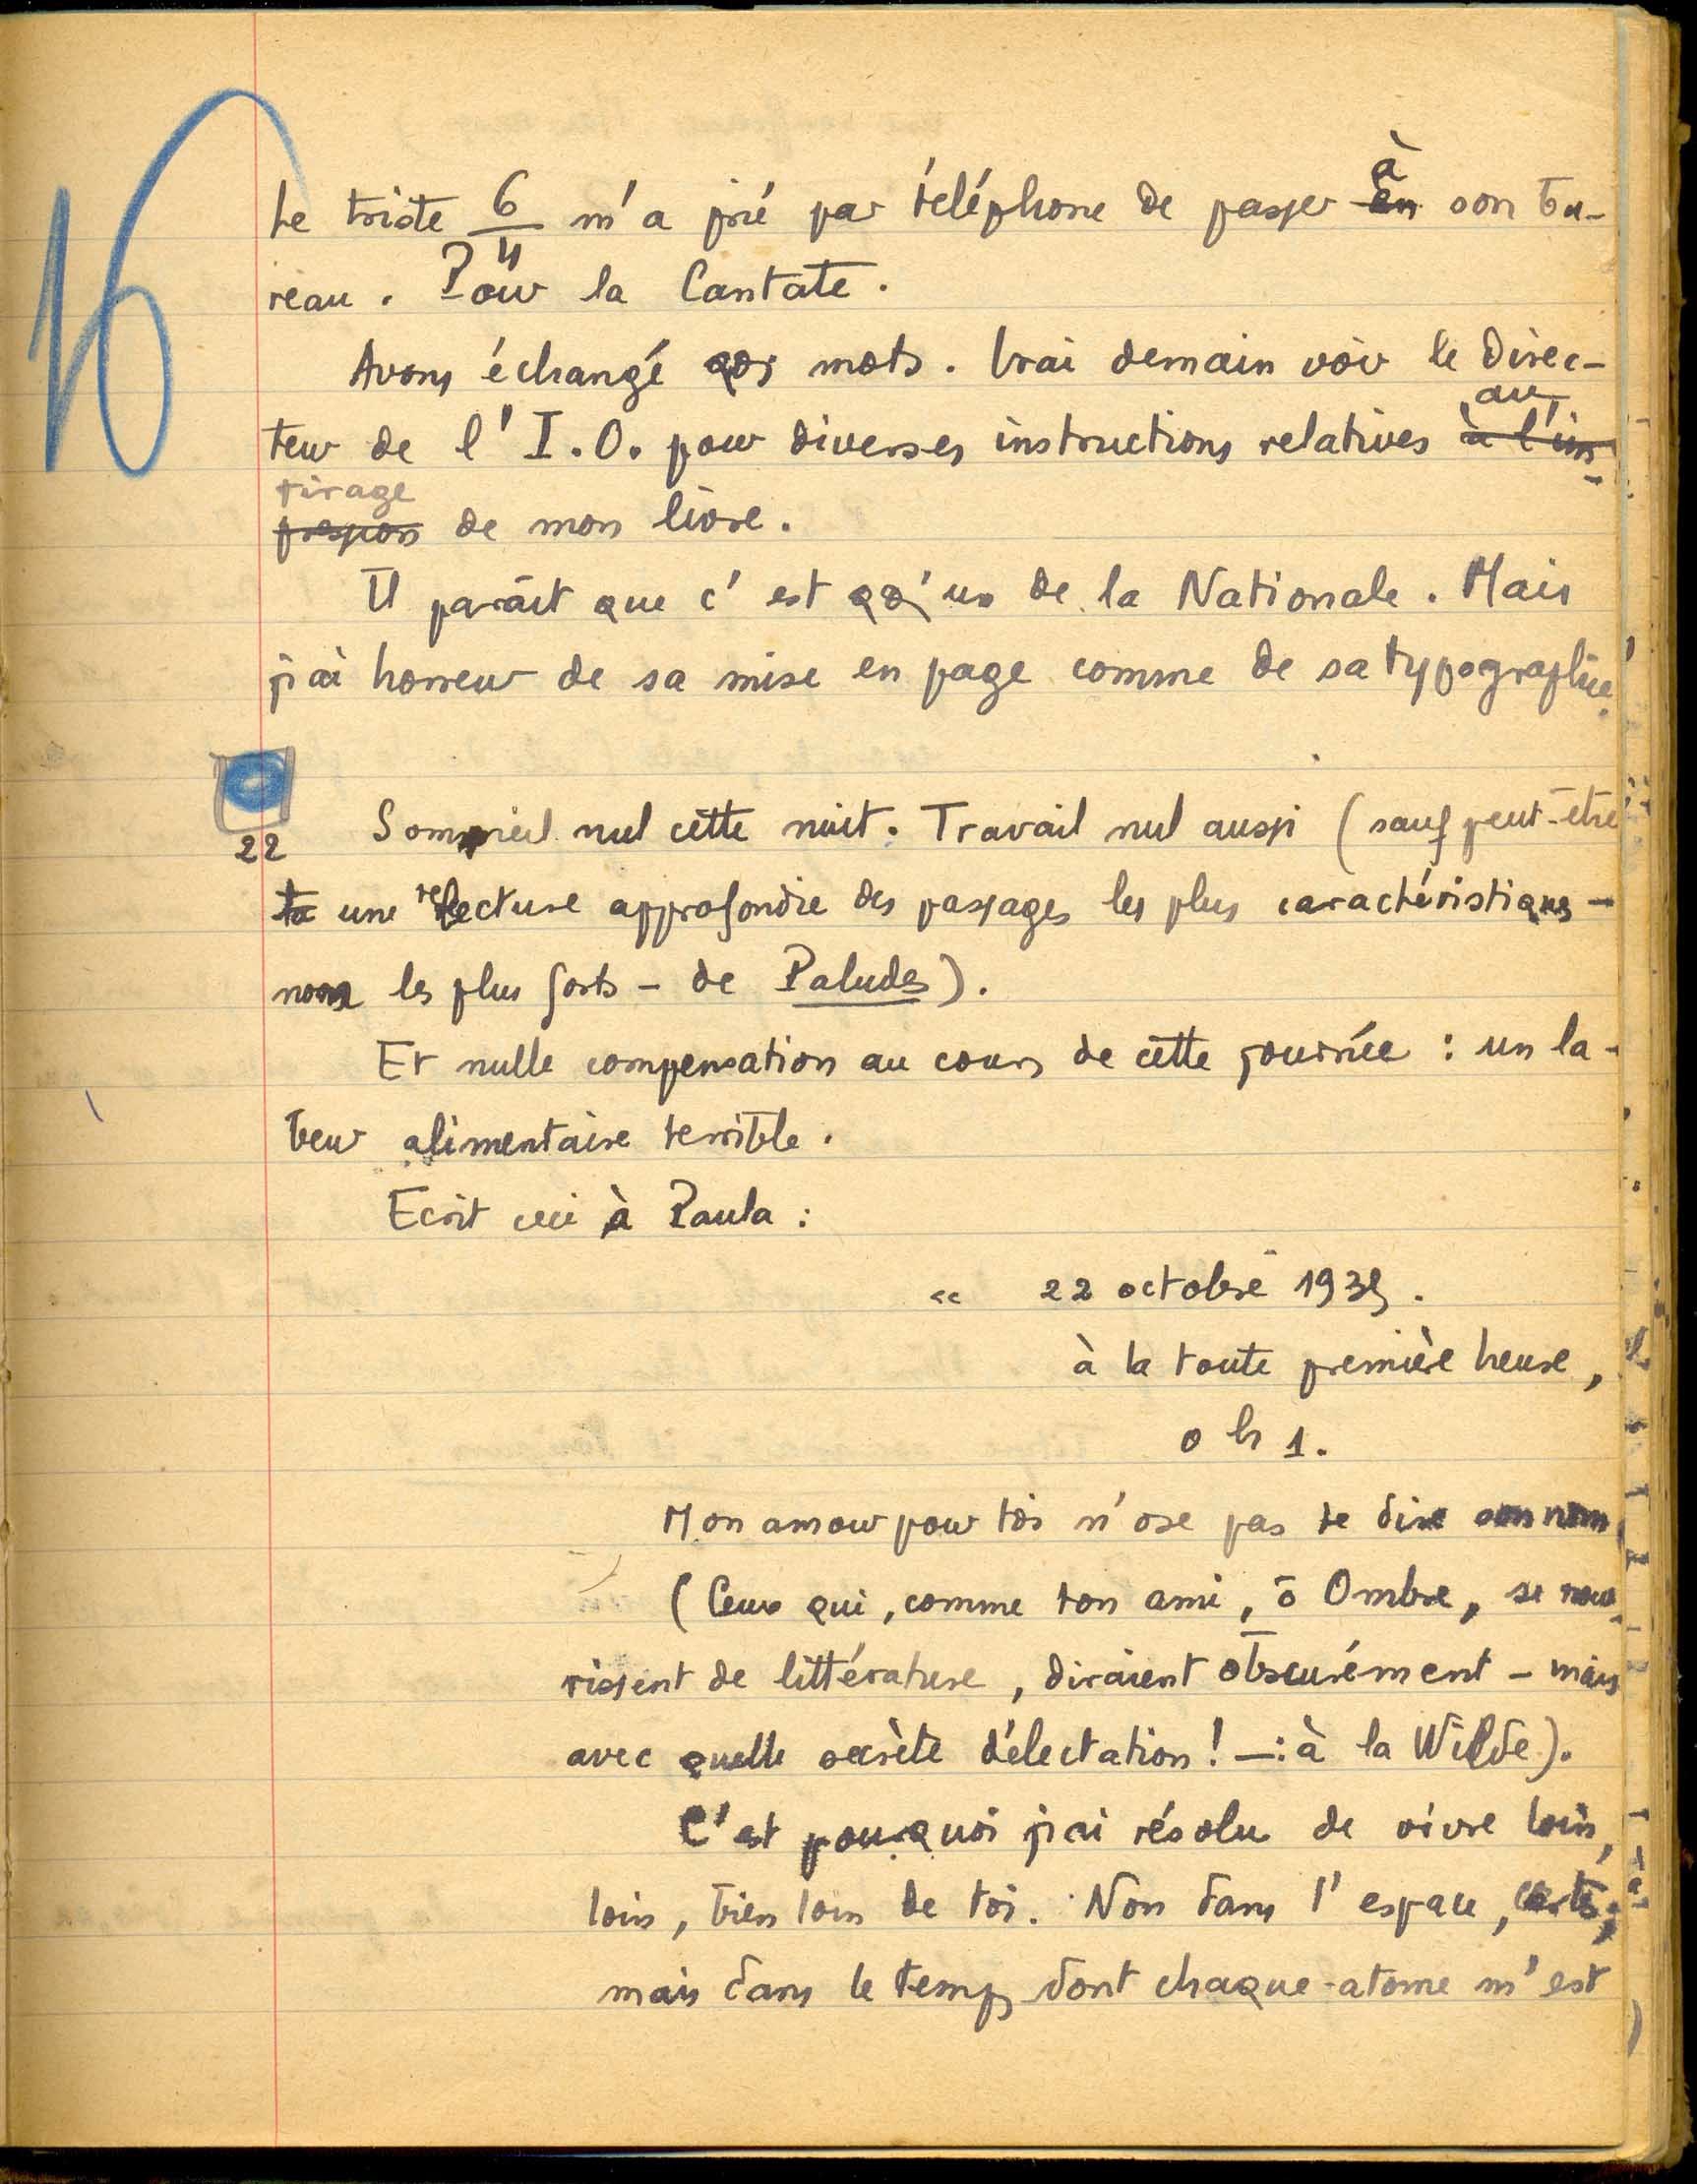 16
Le triste 6/4 m'a prié par téléphone de passer en à son bu-
reau. Pour la Cantate.
Avons échangé qqs mots. Irai demain voir le Direc-
teur de l'I.O. pour diverses instructions relatives à l'im- au
pression tirage de mon livre.
Il paraît que c'est qq'un de la Nationale. Mais
j'ai horreur de sa mise en page comme de sa typographie.
22 Sommeil nul cette nuit. Travail nul aussi (sauf peut-être
la une relecture approfondie des passages les plus caractéristiques -
non les plus forts - de Paludes).
Et nulle compensation au cours de cette journée : un la-
beur alimentaire terrible.
Ecrit ceci à Paula :
« 22 octobre 1939.
à la toute première heure,
0 h 1.
Mon amour pour toi n'ose pas te dire son nom
(Ceux qui, comme ton ami, ô Ombre, se nour-
rissent de littérature, diraient obscurément - mais
avec quelle secrète délectation ! - : à la Wilde).
C'est pourquoi j'ai résolu de vivre loin,
loin, bien loin de toi. Non dans l'espace, certes ;
mais dans le temps dont chaque atome m'est